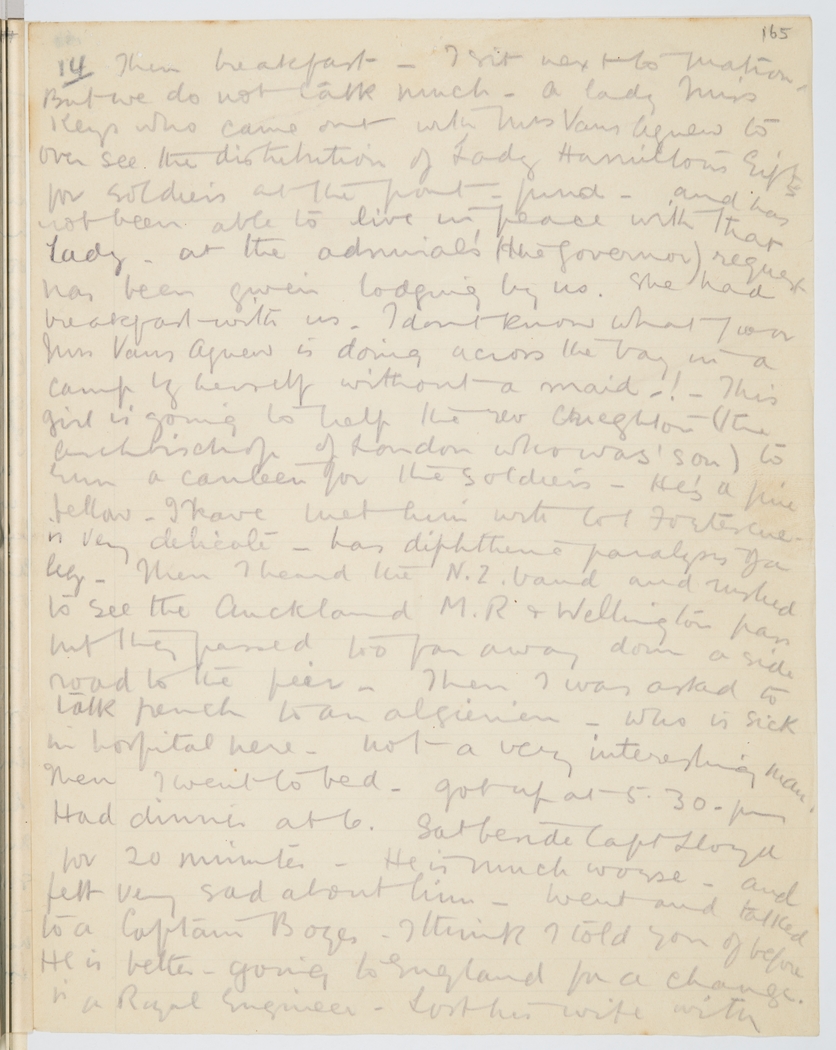 165
14 Then breakfast - I sit next to Matron.
But we do not talk much - a lady Miss
Keys who came out with Mrs Vans Agnew to
over see the distribution of Lady Hamiltons Gifts
for soldiers at the front - fund - and has
not been able to live in peace with that
Lady - at the admirals (the Governor) request
has been given lodging by us. She had
breakfast with us - I dont know what poor
Mrs Vans Agnew is doing across the bay in a
camp by herself without a maid -! - This
girl is going to help the rev Creighton (the
archbischop of London who was' son) to
run a canteen for the soldiers - He's a fine
fellow - I have met him with Col Fortescue -
is very delicate - has diphtheric paralysis of a
leg - Then I heard the N.Z. band and rushed
to see the Auckland M.R & Wellington pass
but they passed too far away down a side
road to the pier - Then I was asked to
talk french to an algierien - who is sick
in hospital here - not a very interesting man.
Then I went to bed - got up at 5.30 - pm
Had dinner at 6. Sat beside Capt Lloyd
for 20 minutes - He is much worse - and
felt very sad about him - went and talked
to a Captain Boges - I think I told you of before
He is better - going to England for a change.
is a Royal Engineer - Lost his wife with